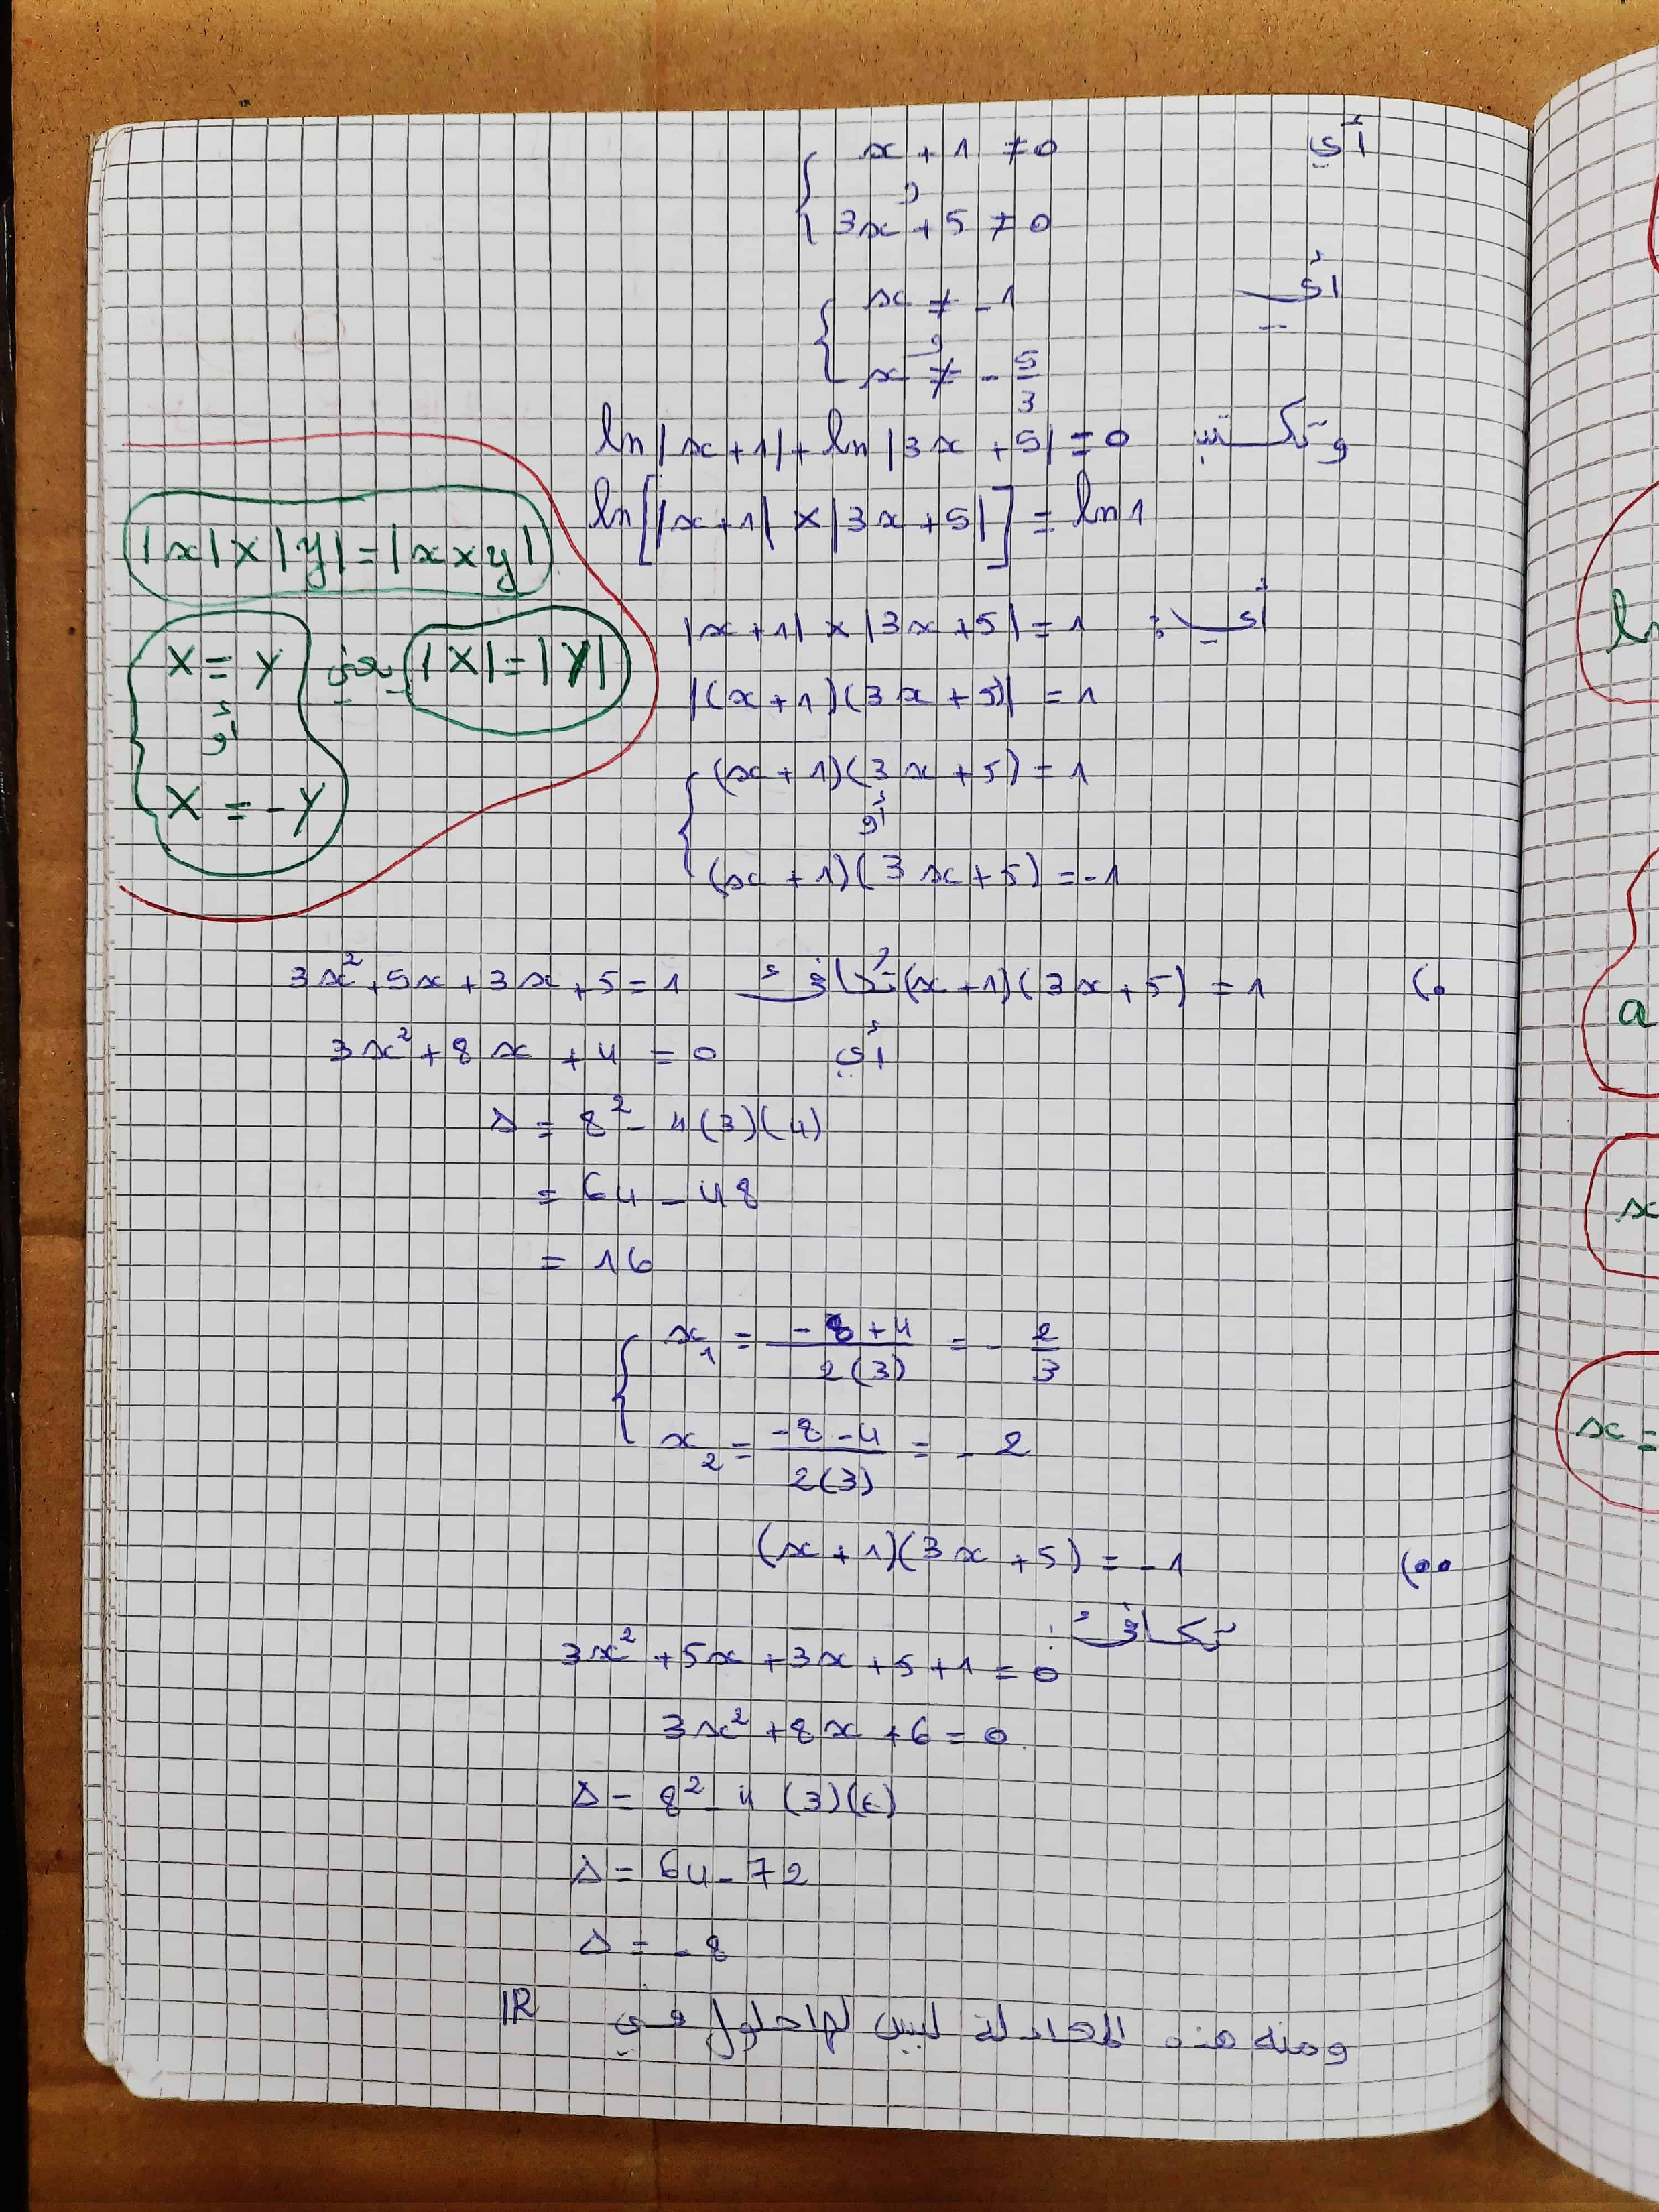 أي { x + 1 ≠ 0
و
3x + 5 ≠ 0
أي { x ≠ -1
و
x ≠ - 5/3
وتكتب ln|x+1| + ln|3x+5| = 0
ln[|x+1| × |3x+5|] = ln 1
|x| × |y| = |x × y|
أي: |x+1| × |3x+5| = 1
|X| = |Y| يعني { X = Y
أو
X = -Y
|(x+1)(3x+5)| = 1
{ (x+1)(3x+5) = 1
أو
(x+1)(3x+5) = -1
•) (x+1)(3x+5) = 1 تكافئ 3x² + 5x + 3x + 5 = 1
أي 3x² + 8x + 4 = 0
Δ = 8² - 4(3)(4)
= 64 - 48
= 16
{ x₁ = (-8+4)/2(3) = - 2/3
x₂ = (-8-4)/2(3) = - 2
••) (x+1)(3x+5) = -1
تكافئ:
3x² + 5x + 3x + 5 + 1 = 0
3x² + 8x + 6 = 0
Δ = 8² - 4(3)(6)
Δ = 64 - 72
Δ = - 8
ومنه هذه المعادلة ليس لها حلول في IR
ln
a
x
x =